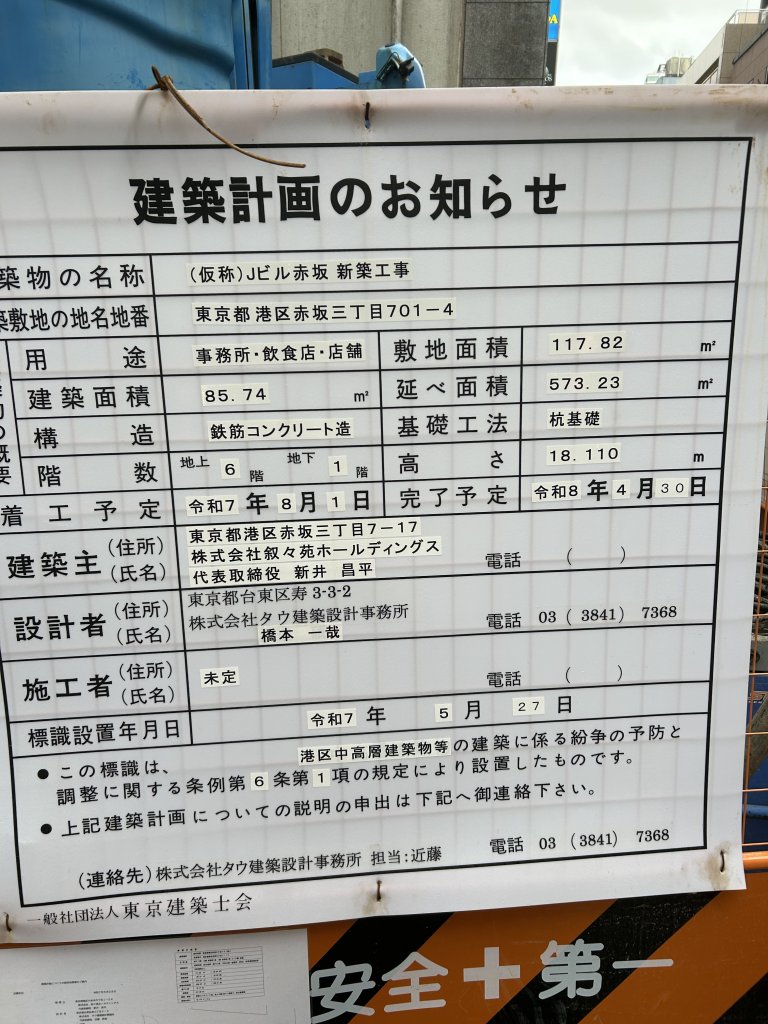 建築計画のお知らせ
築物の名称 (仮称)Jビル赤坂 新築工事
築敷地の地名地番 東京都港区赤坂三丁目701-4
用途 事務所・飲食店・店舗 敷地面積 117.82 m²
建築面積 85.74 m² 延べ面積 573.23 m²
構造 鉄筋コンクリート造 基礎工法 杭基礎
階数 地上 6 階 地下 1 階 高さ 18.110 m
着工予定 令和7年8月1日 完了予定 令和8年4月30日
建築主 (住所) 東京都港区赤坂三丁目7-17
株式会社叙々苑ホールディングス
(氏名) 代表取締役 新井 昌平 電話 ( )
設計者 (住所) 東京都台東区寿3-3-2
(氏名) 株式会社タウ建築設計事務所 電話 03 (3841) 7368
橋本 一哉
施工者 (住所) (氏名) 未定 電話 ( )
標識設置年月日 令和7年 5月 27日
● この標識は、港区中高層建築物等の建築に係る紛争の予防と
調整に関する条例第6条第1項の規定により設置したものです。
● 上記建築計画についての説明の申出は下記へ御連絡下さい。
(連絡先) 株式会社タウ建築設計事務所 担当:近藤 電話 03 (3841) 7368
一般社団法人 東京建築士会
安全+第一